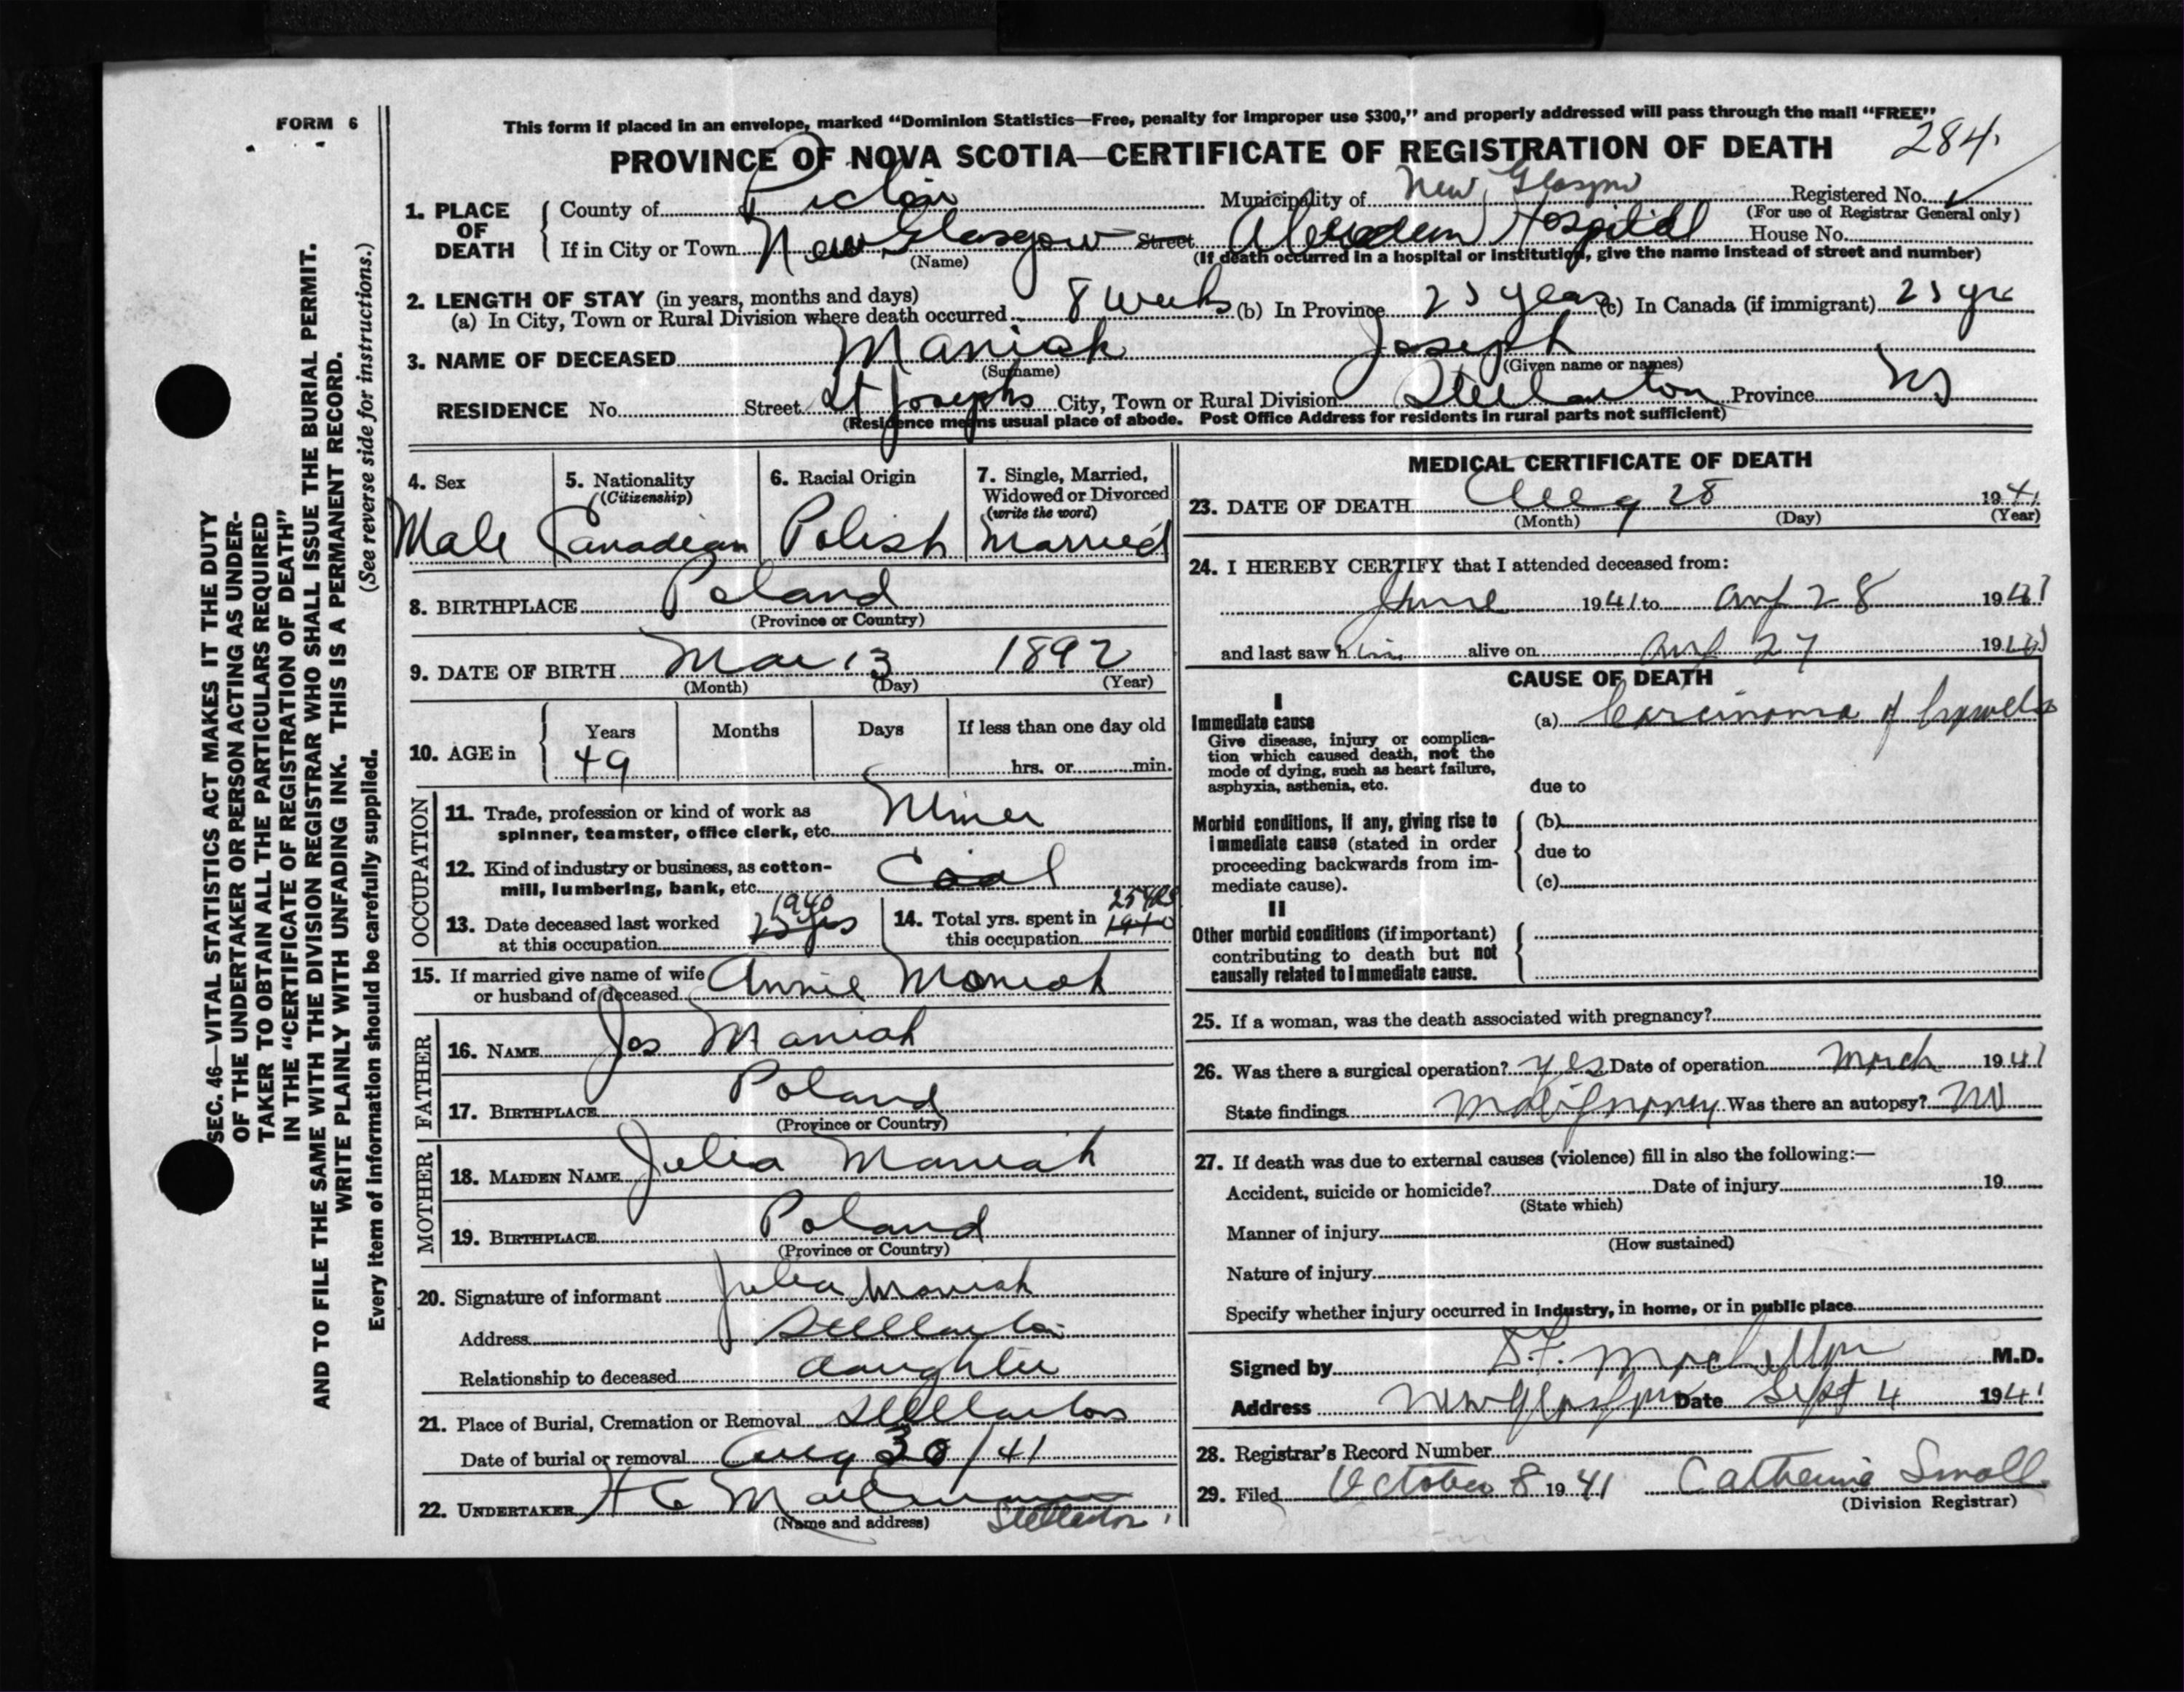 FORM 6
This form if placed in an envelope, marked "Dominion Statistics—Free, penalty for improper use $300," and properly addressed will pass through the mail "FREE"
PROVINCE OF NOVA SCOTIA—CERTIFICATE OF REGISTRATION OF DEATH 284
SEC. 46—VITAL STATISTICS ACT MAKES IT THE DUTY
OF THE UNDERTAKER OR PERSON ACTING AS UNDER-
TAKER TO OBTAIN ALL THE PARTICULARS REQUIRED
IN THE "CERTIFICATE OF REGISTRATION OF DEATH"
AND TO FILE THE SAME WITH THE DIVISION REGISTRAR WHO SHALL ISSUE THE BURIAL PERMIT.
WRITE PLAINLY WITH UNFADING INK. THIS IS A PERMANENT RECORD.
(See reverse side for instructions.)
Every item of information should be carefully supplied.
1. PLACE OF DEATH
County of Pictou Municipality of New Glasgow Registered No.
(For use of Registrar General only)
If in City or Town New Glasgow Street Aberdeen Hospital House No.
(Name) (If death occurred in a hospital or institution, give the name instead of street and number)
2. LENGTH OF STAY (in years, months and days)
(a) In City, Town or Rural Division where death occurred 8 weeks (b) In Province 25 years (c) In Canada (if immigrant) 25 yrs
3. NAME OF DECEASED Maniak Joseph
(Surname) (Given name or names)
RESIDENCE No. Street St Josephs City, Town or Rural Division Stellarton Province NS
(Residence means usual place of abode. Post Office Address for residents in rural parts not sufficient)
4. Sex Male
5. Nationality (Citizenship) Canadian
6. Racial Origin Polish
7. Single, Married, Widowed or Divorced (write the word) Married
8. BIRTHPLACE Poland
(Province or Country)
9. DATE OF BIRTH Mar 13 1892
(Month) (Day) (Year)
10. AGE in Years Months Days If less than one day old
49 hrs. or min.
OCCUPATION
11. Trade, profession or kind of work as
spinner, teamster, office clerk, etc. Miner
12. Kind of industry or business, as cotton-
mill, lumbering, bank, etc. Coal
13. Date deceased last worked at this occupation 1940 25 yrs
14. Total yrs. spent in this occupation 25 yrs 1940
15. If married give name of wife
or husband of deceased Annie Maniak
FATHER
16. NAME Jos Maniak
17. BIRTHPLACE Poland
(Province or Country)
MOTHER
18. MAIDEN NAME Julia Maniak
19. BIRTHPLACE Poland
(Province or Country)
20. Signature of informant Julia Maniak
Address Stellarton
Relationship to deceased daughter
21. Place of Burial, Cremation or Removal Stellarton
Date of burial or removal Aug 30/41
22. UNDERTAKER H G
(Name and address) Stellarton
MEDICAL CERTIFICATE OF DEATH
23. DATE OF DEATH Aug 28 1941
(Month) (Day) (Year)
24. I HEREBY CERTIFY that I attended deceased from:
June 1941 to Aug 28 1941
and last saw him alive on Aug 27 1941
CAUSE OF DEATH
I
Immediate cause (a) Carcinoma of bowels
Give disease, injury or complica-
tion which caused death, not the
mode of dying, such as heart failure,
asphyxia, asthenia, etc. due to
Morbid conditions, if any, giving rise to (b)
immediate cause (stated in order due to
proceeding backwards from im-
mediate cause). (c)
II
Other morbid conditions (if important)
contributing to death but not
causally related to immediate cause.
25. If a woman, was the death associated with pregnancy?
26. Was there a surgical operation? yes Date of operation March 1941
State findings Malignancy Was there an autopsy? No
27. If death was due to external causes (violence) fill in also the following:—
Accident, suicide or homicide? Date of injury 19
(State which)
Manner of injury
(How sustained)
Nature of injury
Specify whether injury occurred in industry, in home, or in public place
Signed by M.D.
Address New Glasgow Date Sept 4 1941
28. Registrar's Record Number
29. Filed October 8 1941 Catherine Small
(Division Registrar)